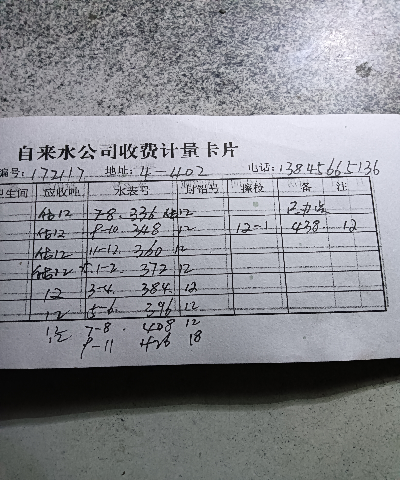 自来水公司收费计量卡片
编号: 172117 地址: 4-402 电话: 13845665136
卫生间 应收吨 水表号 封铅号 操检 备 注
估12 7-8. 336 估12
估12 9-10. 348 12 12-1 438 12
估12 11-12. 360 12
估12 1-2 372 12
12 3-4. 384. 12
12 5-6. 396 12
12 7-8. 408 12
12 9-11 426 18